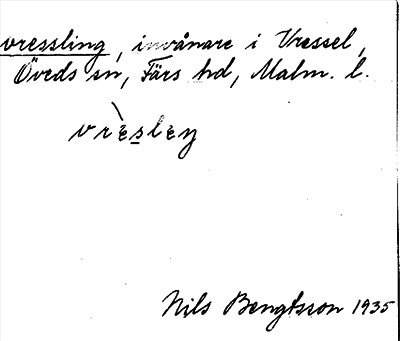 vressling, invånare i Vressel,
Öveds sn, Färs hd, Malm. l.
vrèsleŋ
Nils Bengtsson 1935